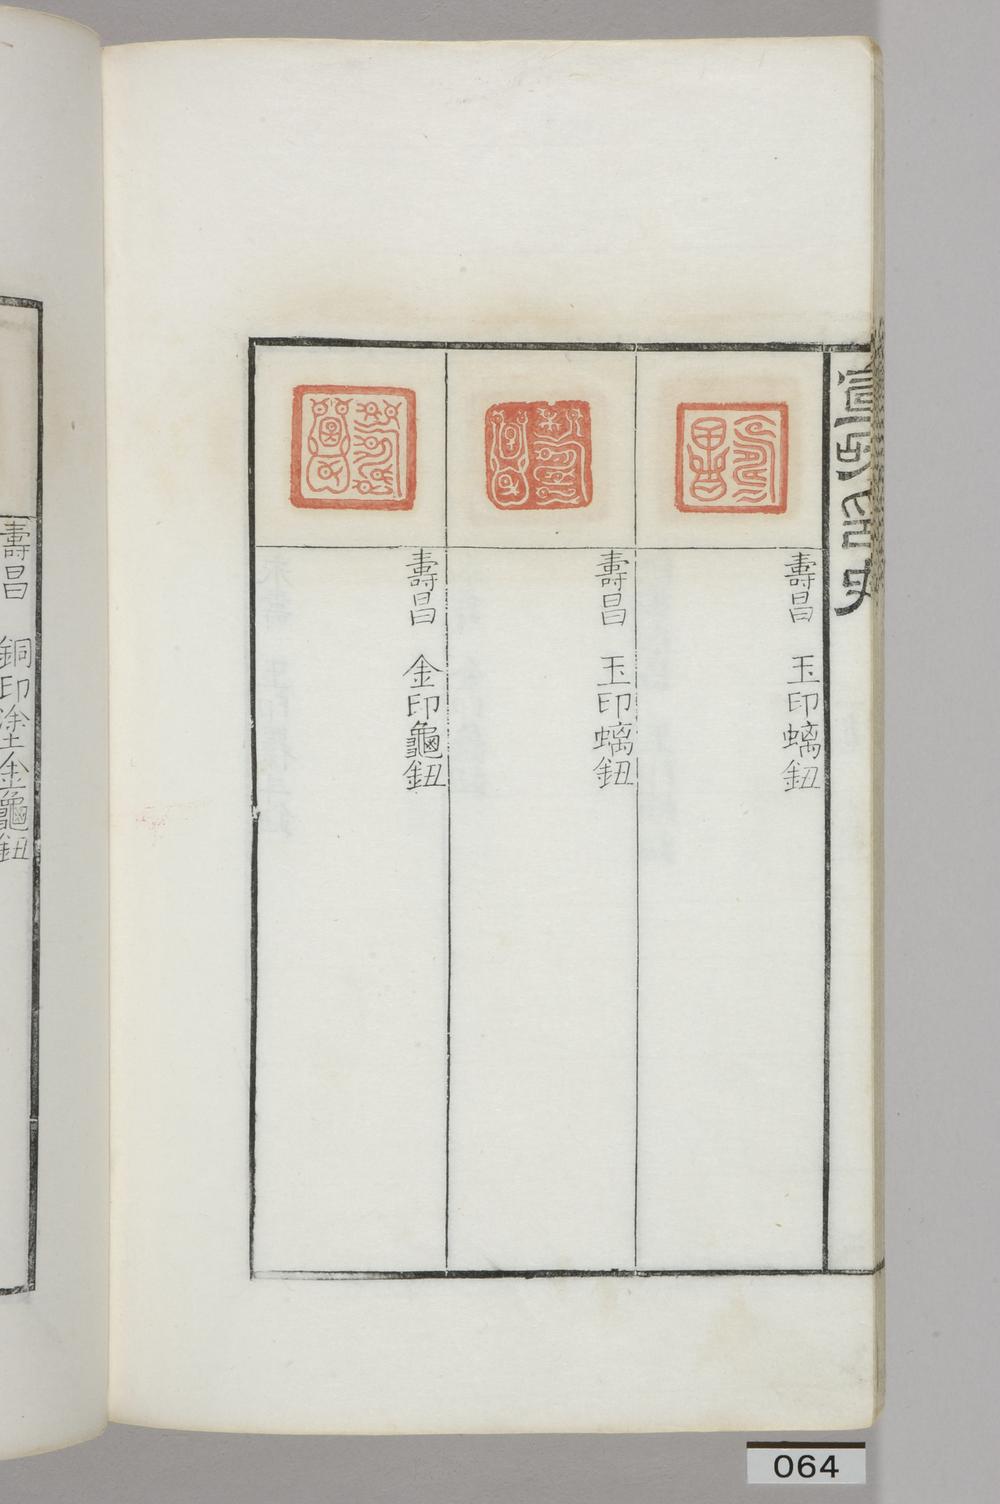 宣和印史
壽昌 玉印螭鈕
壽昌 玉印螭鈕
壽昌 金印龜鈕
壽昌 銅印塗金龜鈕
064